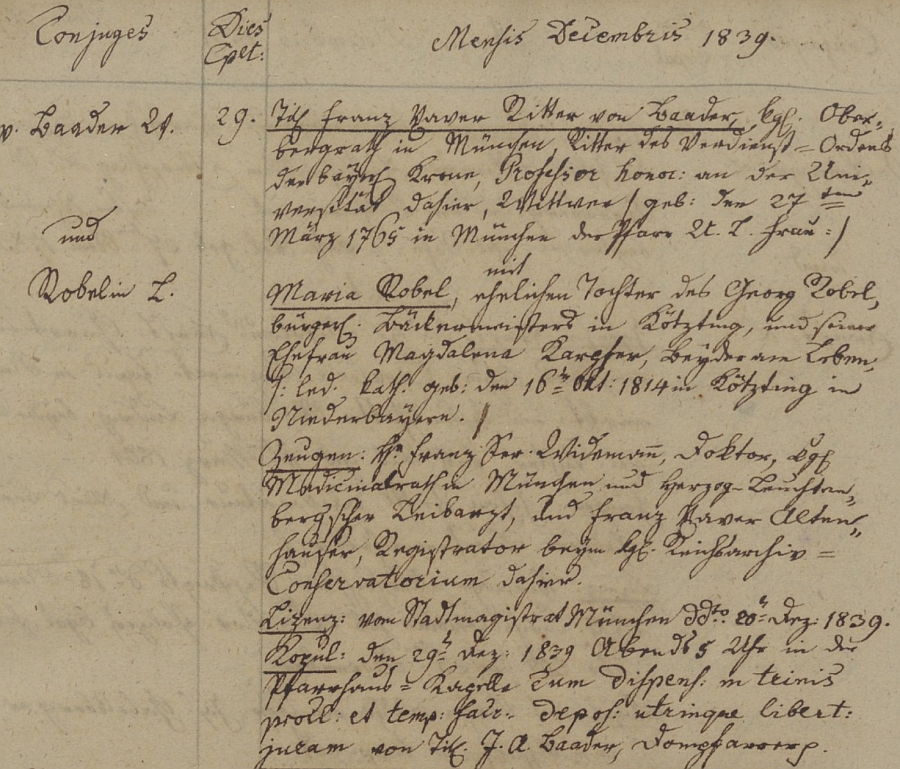 Conjuges
Dies
Cplt:
Mensis Decembris 1839.
v. Baader W.
29.
Titl Franz Xaver Ritter von Baader, kgl. Ober-
bergrath in München, Ritter des Verdienst-Ordens
der bayer. Krone, Professor honor: an der Uni-
versität dahier, Wittwer /: geb: den 27ten
März 1765 in München der Pfarr U. L. Frau :/
mit
und
Robelin L.
Maria Robel, ehelichen Tochter des Georg Robel,
bürgerl. Bäckermeisters in Kötzting, und seiner
Ehefrau Magdalena Karcher, beyde am Leben,
/: led. kath. geb: den 16ten Okt: 1814 in Kötzting in
Niederbayern. /
Zeugen: Hr. Franz Ser. Widemann, Doktor, kgl.
Medicinalrath in München und Herzog-Leuchten-
berg'scher Leibarzt, und Franz Xaver Alten-
hauser, Registrator beym kgl. Reichsarchiv-
Conservatorium dahier.
Lizenz: vom Stadtmagistrat München ddto. 20t Dez: 1839.
Kopul: den 29t Dez: 1839 Abends 5 Uhr in der
Pfarrhaus-Kapelle cum dispens: in trinis
procl: et temp: sacr. depos: utrinque libert:
juram von Titl. J. A. Baader, Dompfarrer p.